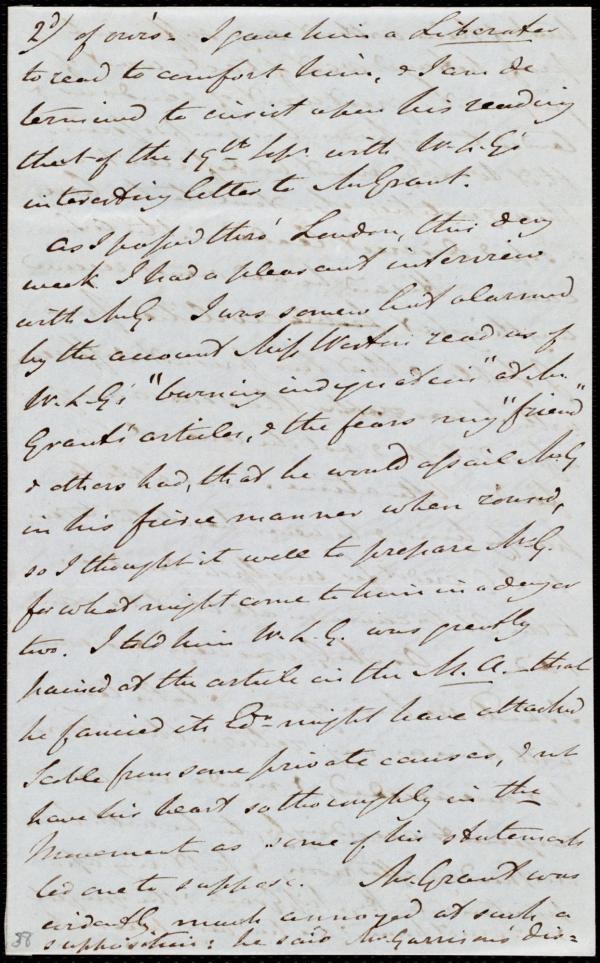 2d) of ours = I gave him a Liberator
to read to comfort him, & I am de
termined to insist upon his reading
that of the 19th Sepr with W.L.G's
interesting letter to Mr Grant.
As I passed thro' London, this day
week I had a pleasant interview
with Mr G. I was somewhat alarmed
by the account Miss Weston read us of
W.L.G's "burning indignation" at Mr
Grant's articles, & the fears my "friend"
& others had, that he would assail Mr G
in his fierce manner when roused,
so I thought it well to prepare Mr G.
for what might come to him in a day or
two. I told him W.L.G. was greatly
pained at the article in the M.A. that
he fancied its Edr might have attacked
from some private causes, & not
have his heart so thoroughly in the
Movement as some of his statements
led one to suppose. Mr Grant was
evidently much annoyed at such a
supposition: he said Mr Garrison's dis=
38